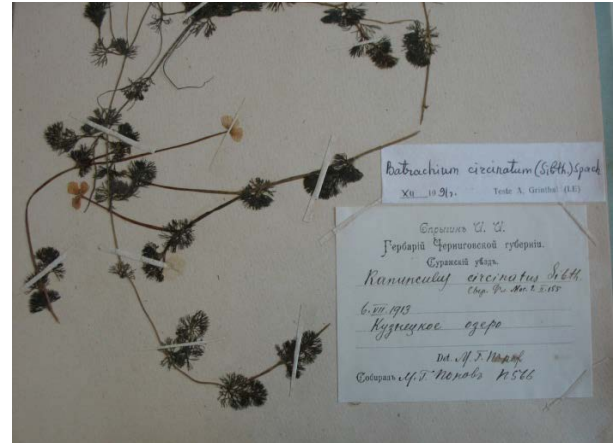 Batrachium circinatum (Sibth.) Spach
XII 199 Teste A. Grintbal (LE)
Спрыгинъ И. И.
Гербарій Черниговской губерніи.
Суражскій уѣздъ.
Ranunculus circinatus Sibth.
6.VII.1913
озеро
Det. М. Г. Попов
Собиралъ М. Г. Поповъ N 566